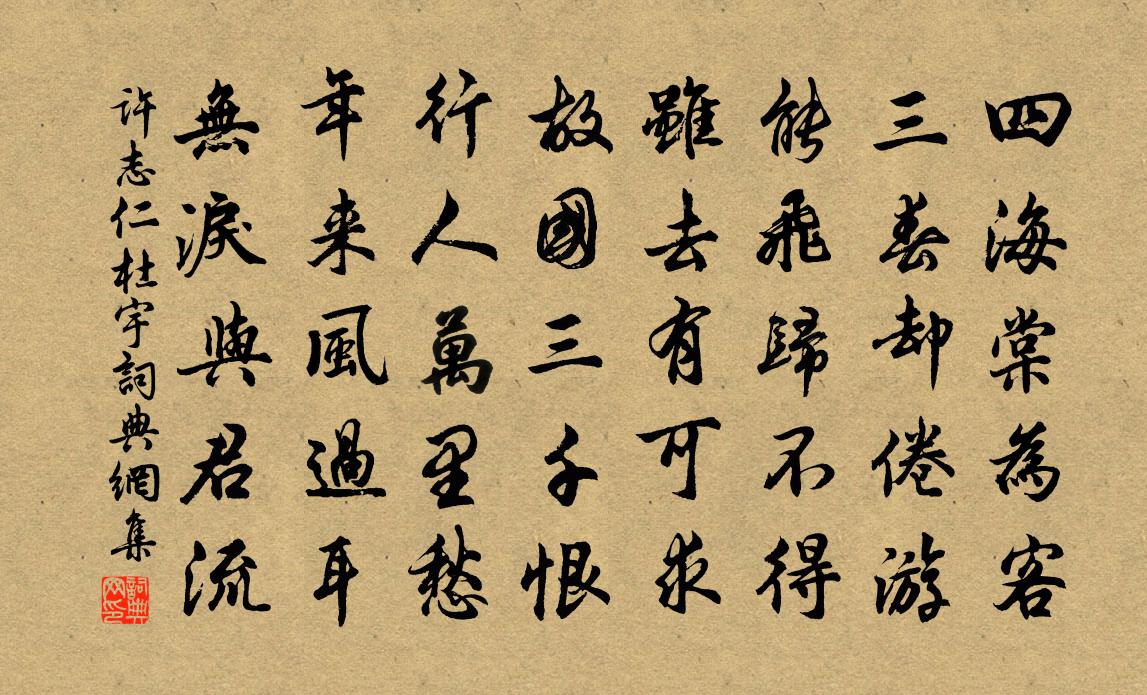 四海棠為客
三春却倦游
能飛歸不得
雖去有可求
故國三千恨
行人萬里愁
年来風過耳
無淚與君流
許志仁杜宇詞典網集
詞典网印